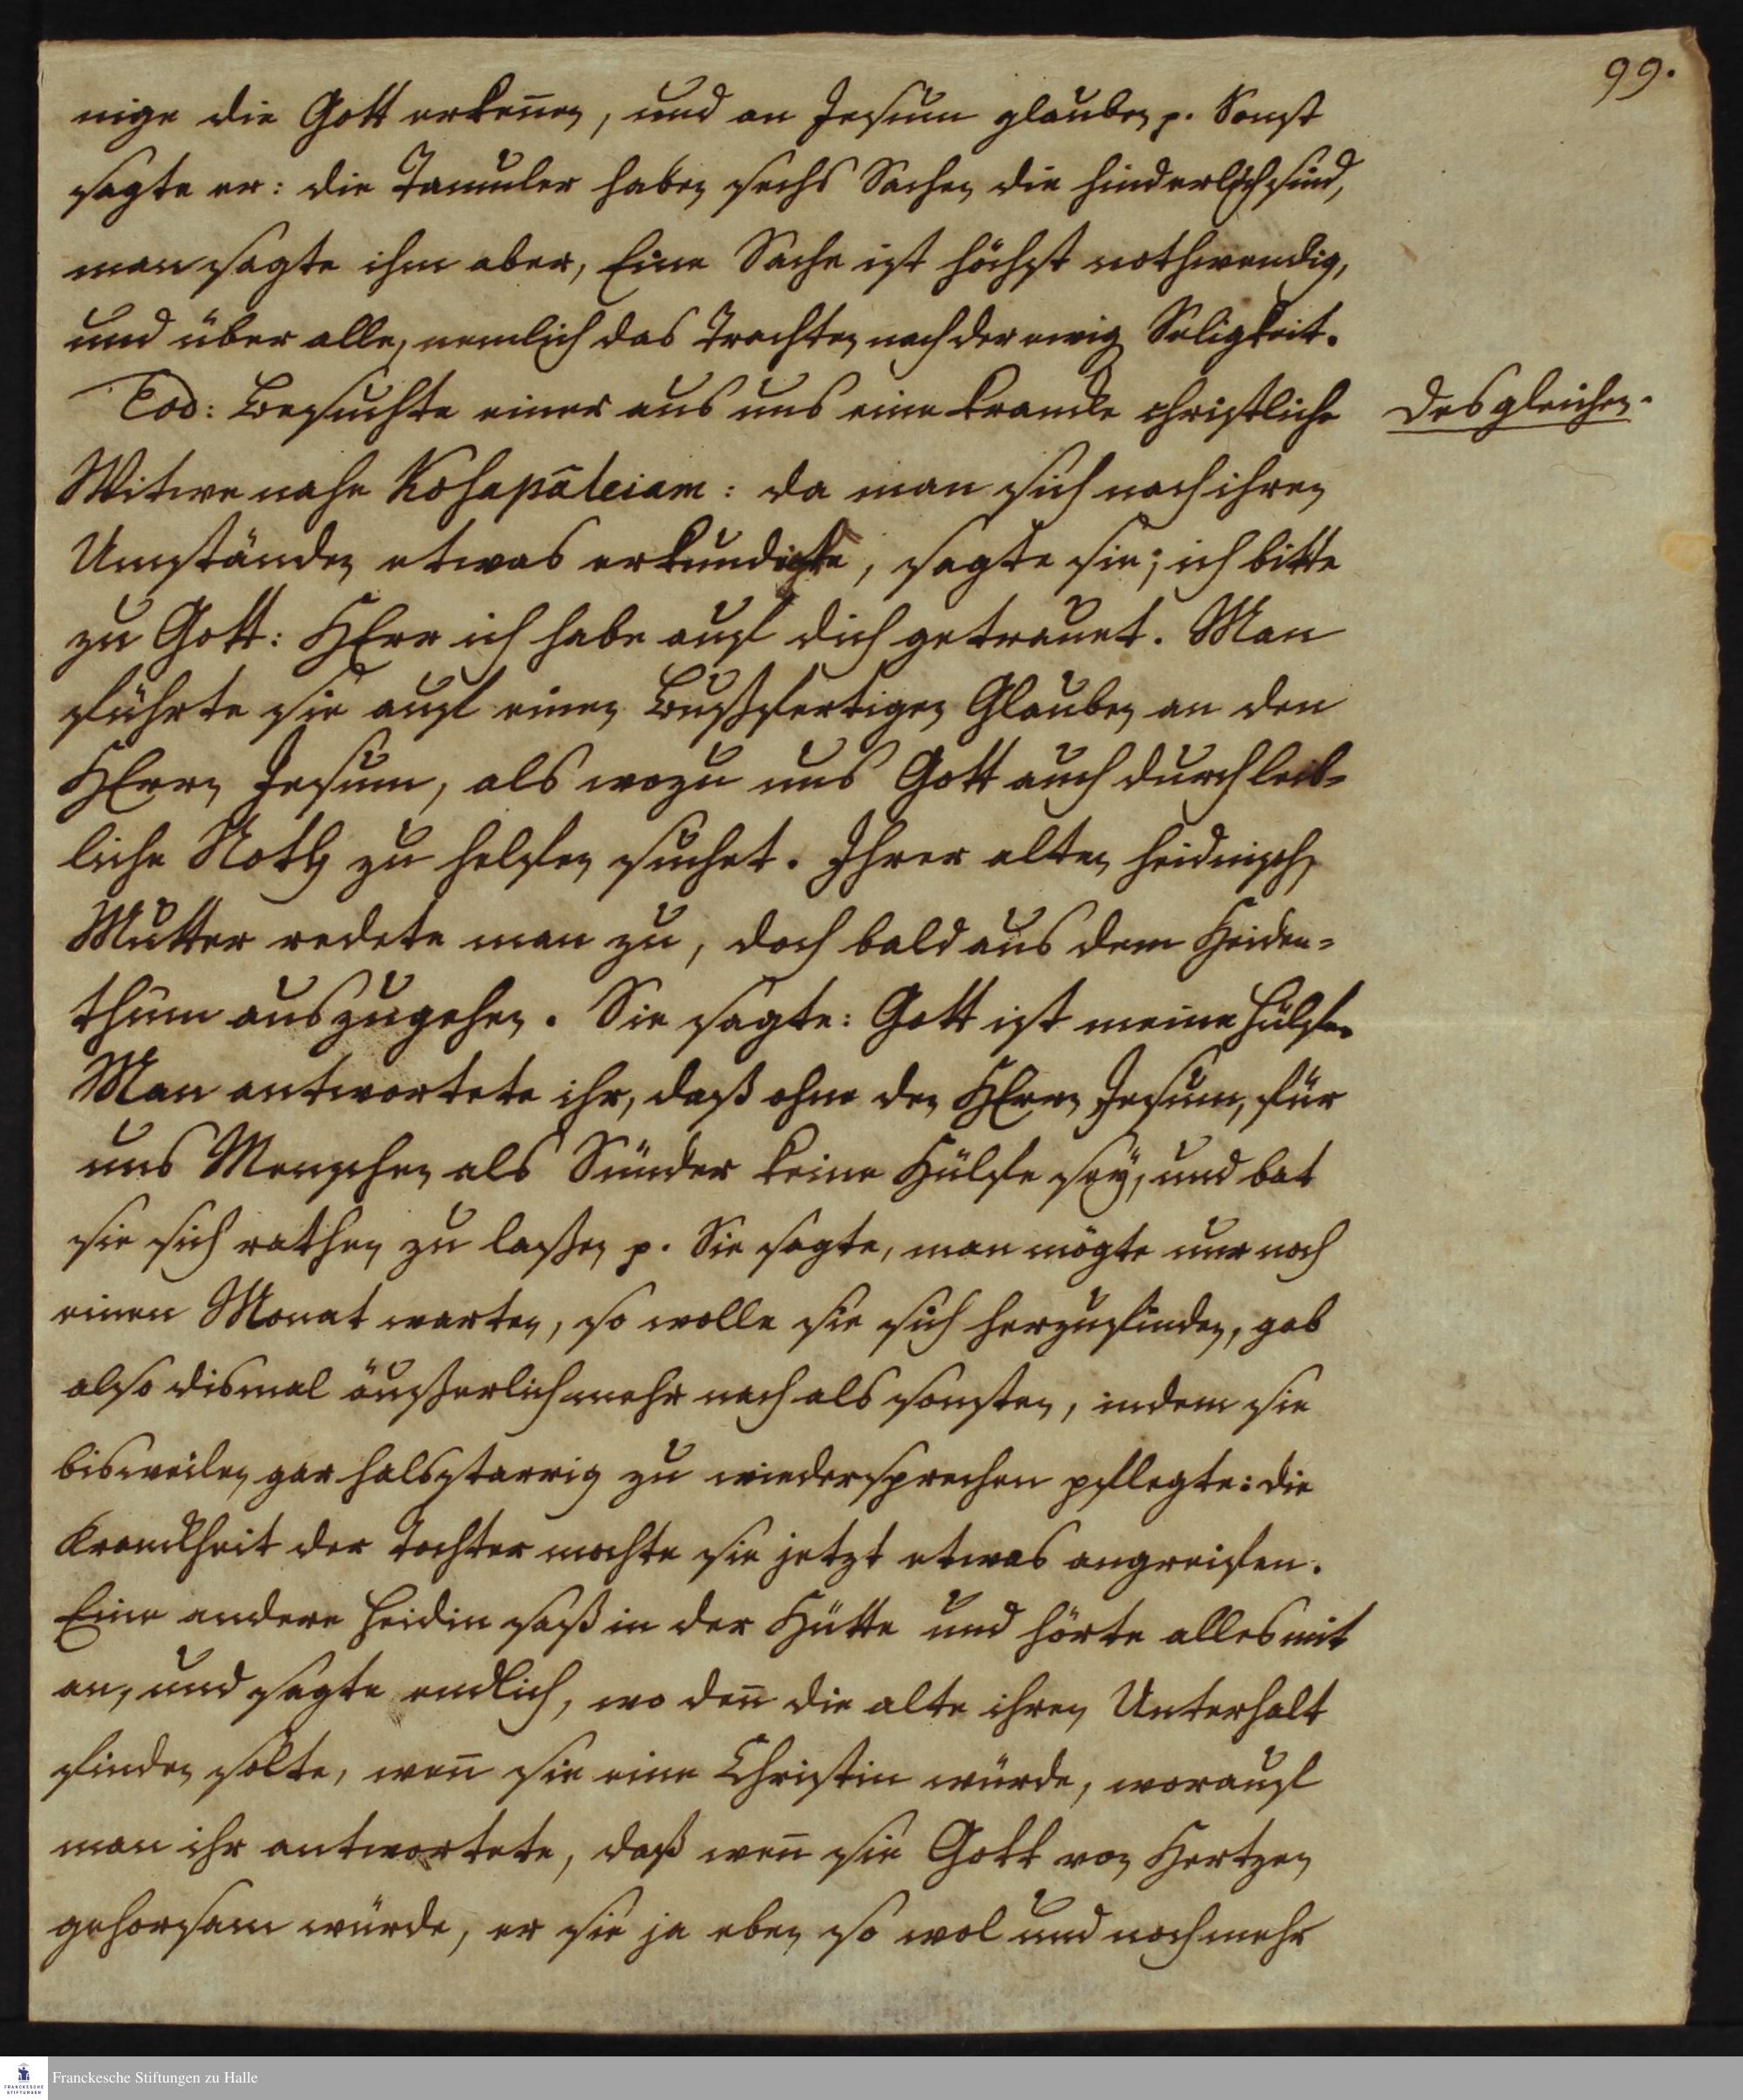 99.
nige die Gott erkeñen, und an Jesum glauben p. Sonst
sagte er: die Tamuler haben sechs Sachen die hinderlich sind,
man sagte ihm aber, Eine Sache ist höchst nothwendig,
und über alle, nemlich das Trachten nach der ewig Seligkeit.
Eod: Besuchte einer aus uns eine krancke christliche
desgleichen.
Witwe nahe Kohapāleiam: da man sich nach ihren
Umständen etwas erkundigte, sagte sie; ich bitte
zu Gott: HErr ich habe auf dich getrauet. Man
führte sie auf einen Bußfertigen Glauben an den
HErrn Jesum, als wozu uns Gott auch durch leib-
liche Noth zu helfen suchet. Ihrer alten heidnisch
Mutter redete man zu, doch bald aus dem Heiden-
thum auszugehen. Sie sagte: Gott ist meine Hülfe.
Man antwortete ihr, daß ohne den HErrn Jesum, für
uns Menschen als Sünder keine Hülfe seÿ, und bat
sie sich rathen zu laßen p. Sie sagte, man mögte nur noch
einen Monat warten, so wolle sie sich herzufinden, gab
also dismal äußerlich mehr nach als sonsten, indem sie
bisweilen gar halsstarrig zu wiedersprechen pflegte: die
Kranckheit der Tochter mochte sie jetzt etwas angreifen.
Eine andere Heidin saß in der Hütte und hörte alles mit
an, und sagte endlich, wo deñ die alte ihren Unterhalt
finden solte, weñ sie eine Christin würde, worauf
man ihr antwortete, daß weñ sie Gott von Hertzen
gehorsam würde, er sie ja eben so wol und noch mehr
Franckesche Stiftungen zu Halle
FRANCKESCHE
STIFTUNGEN